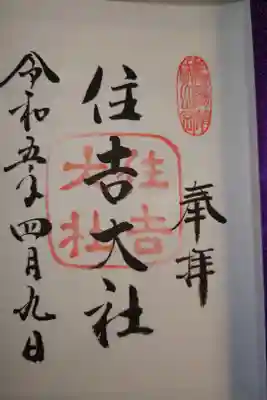 奉拝
住吉大社
住吉
大社
令和五年四月九日